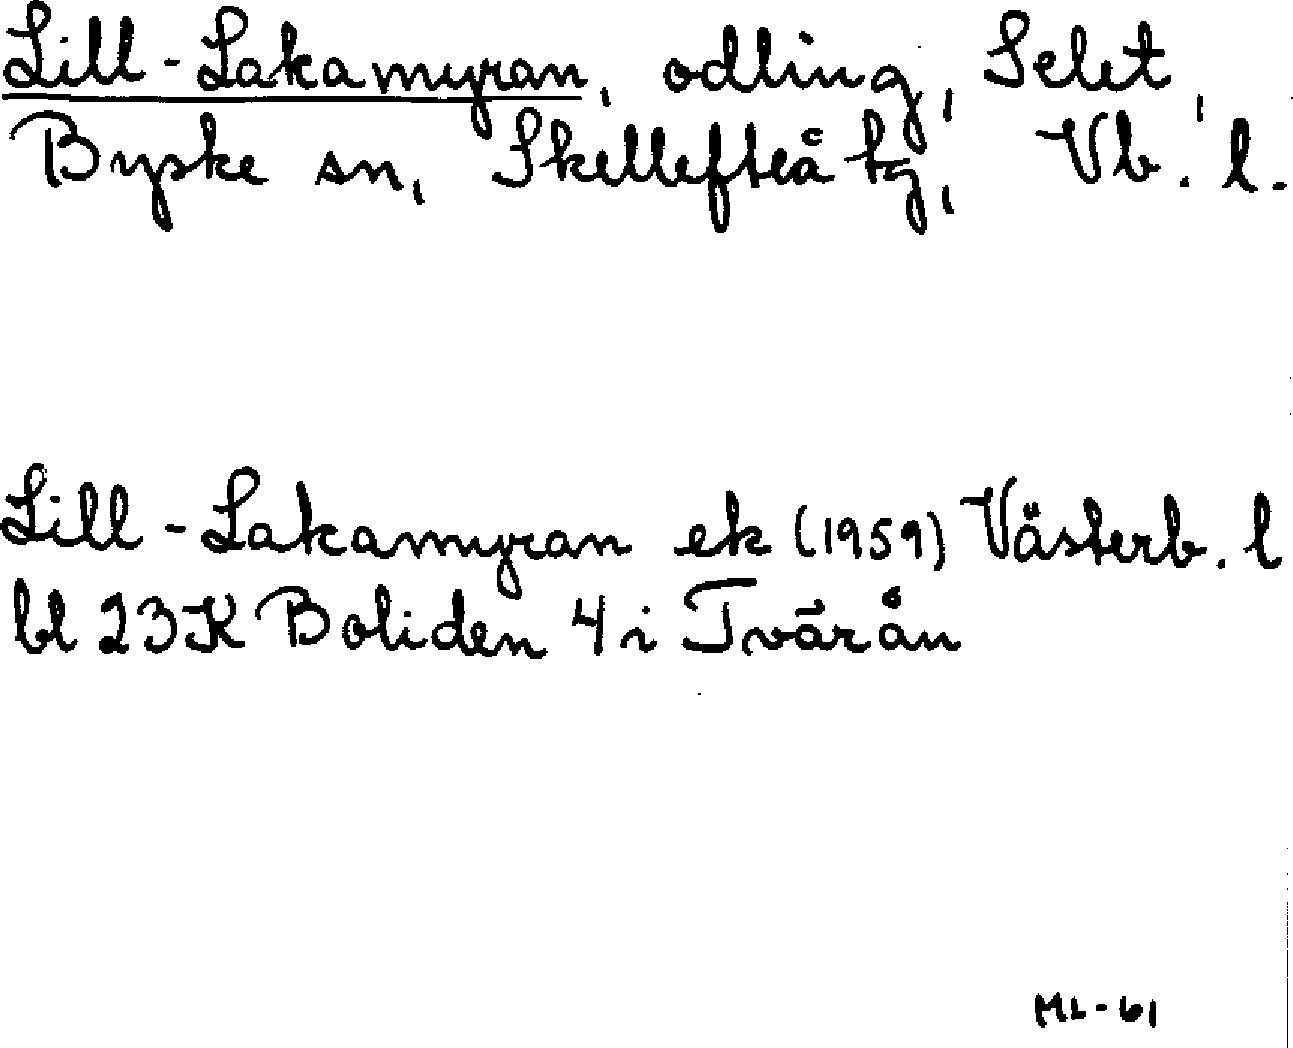 Lill-Lakamyran, odling, Selet,
Byske sn, Skellefteå tg, Vb. l.
Lill-Lakamyran ek (1959) Västerb. l
bl 23K Boliden 4 i Tvärån
ML-61